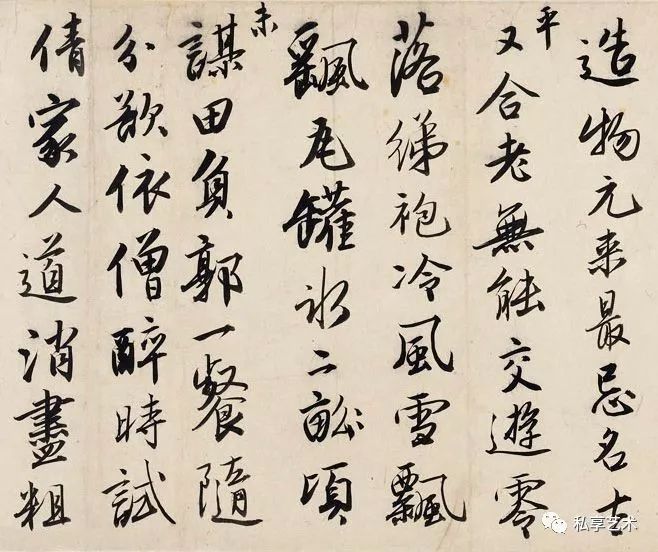 造物元来最忌名
平
又合老無能交遊零
落綈袍冷風雪飄
飄瓦罐氷二畝頃
未
謀田負郭一餐隨
分欲依僧醉時試
倩家人道消盡粗
私享艺术